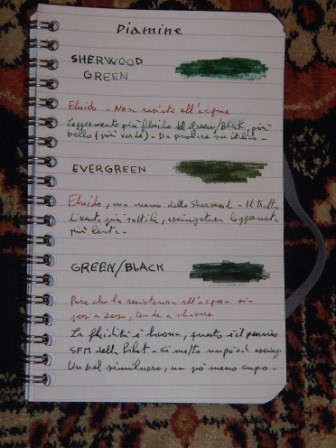 Diamine
SHERWOOD
GREEN
Fluido - Non resiste all'acqua
Leggermente più fluido del Green/Black, più
bello (più verde) -
EVERGREEN
Fluido, ma meno dello Sherwood - Il tratto
diventa più sottile, asciugatura leggermente
più lenta -
GREEN/BLACK
Pare che la resistenza all'acqua sia
pari a zero, tende a
La fluidità è buona, questo è il pennino
SFM della Pilot - Ci mette un po' ad
Un bel similnero, un po' meno cupo -